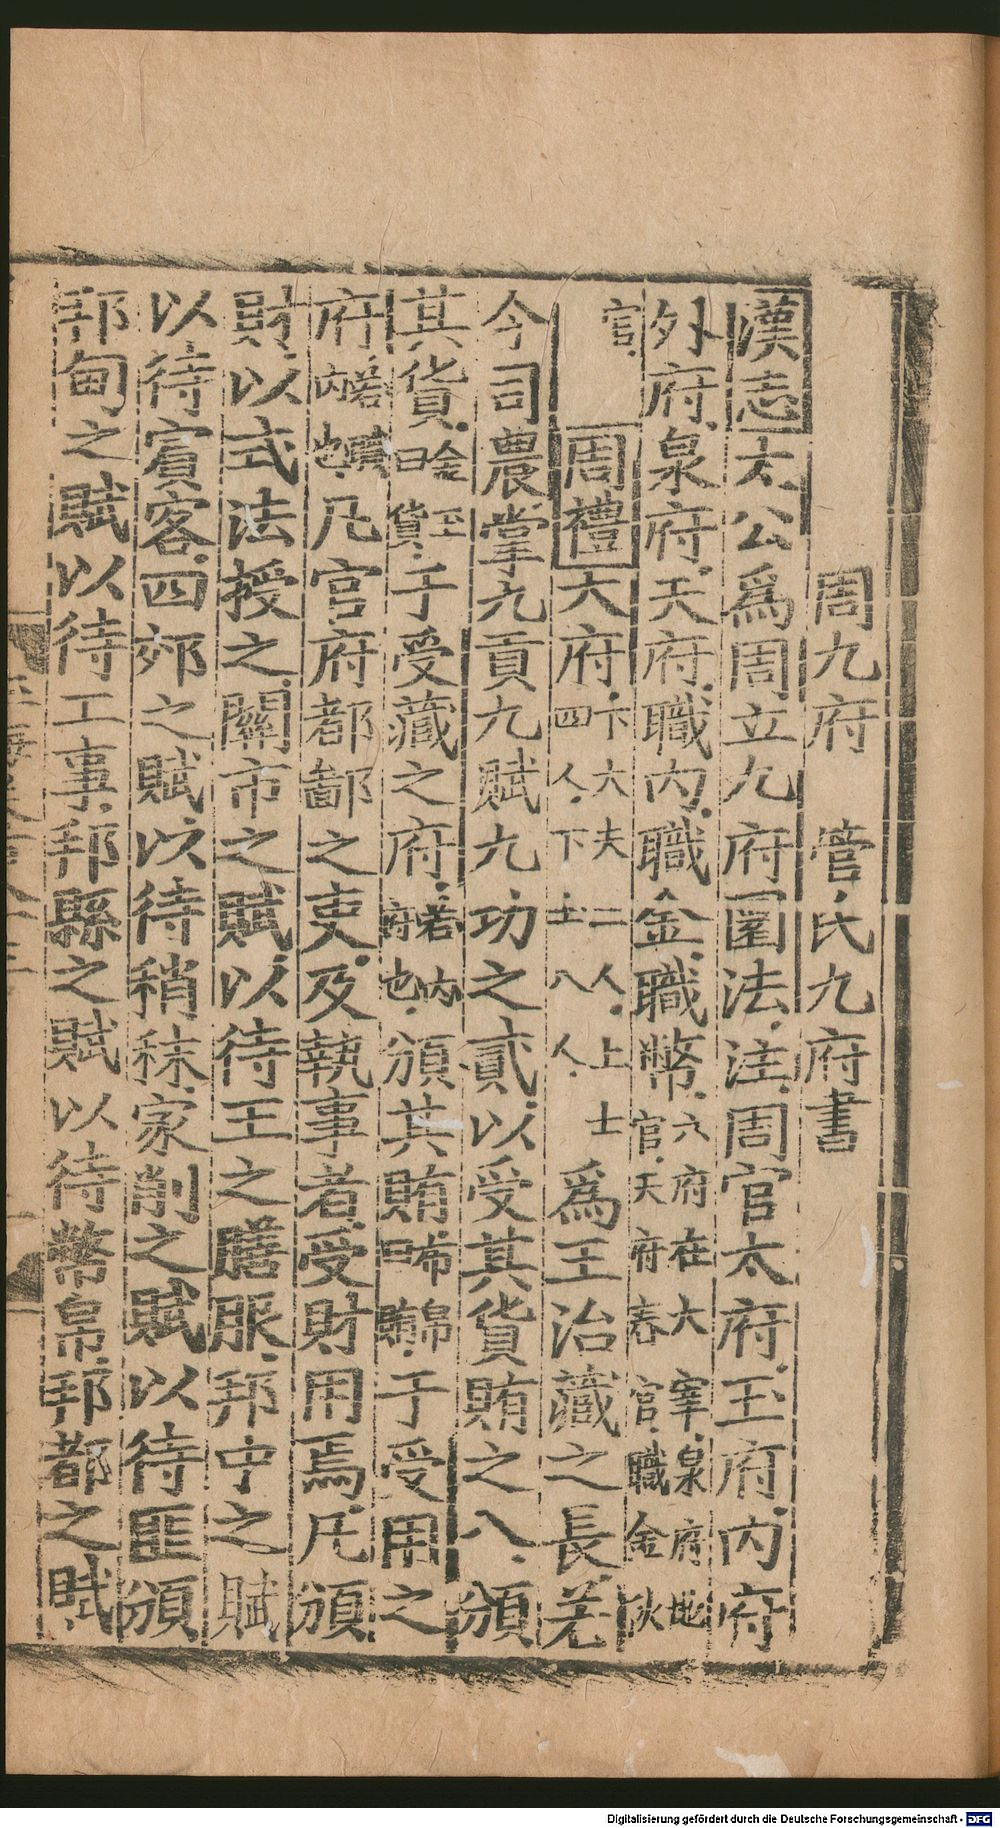 周九府　管氏九府書
漢志太公爲周立九府圜法注周官太府玉府內府
外府泉府天府職內職金職幣六府在大宰泉府地官天府春官職金秋
官　周禮大府下大夫二人上士四人下士八人爲王治藏之長若
今司農掌九貢九賦九功之貳以受其貨賄之入頒
其貨金玉曰貨于受藏之府若內府也頒其賄布帛曰賄于受用之
府若職內也凡官府都鄙之吏及執事者受財用焉凡頒
財以式法授之關市之賦以待王之膳服邦中之賦
以待賓客四郊之賦以待稍秣家削之賦以待匪頒
邦甸之賦以待工事邦縣之賦以待幣帛邦都之賦
Digitalisierung gefördert durch die Deutsche Forschungsgemeinschaft - DFG